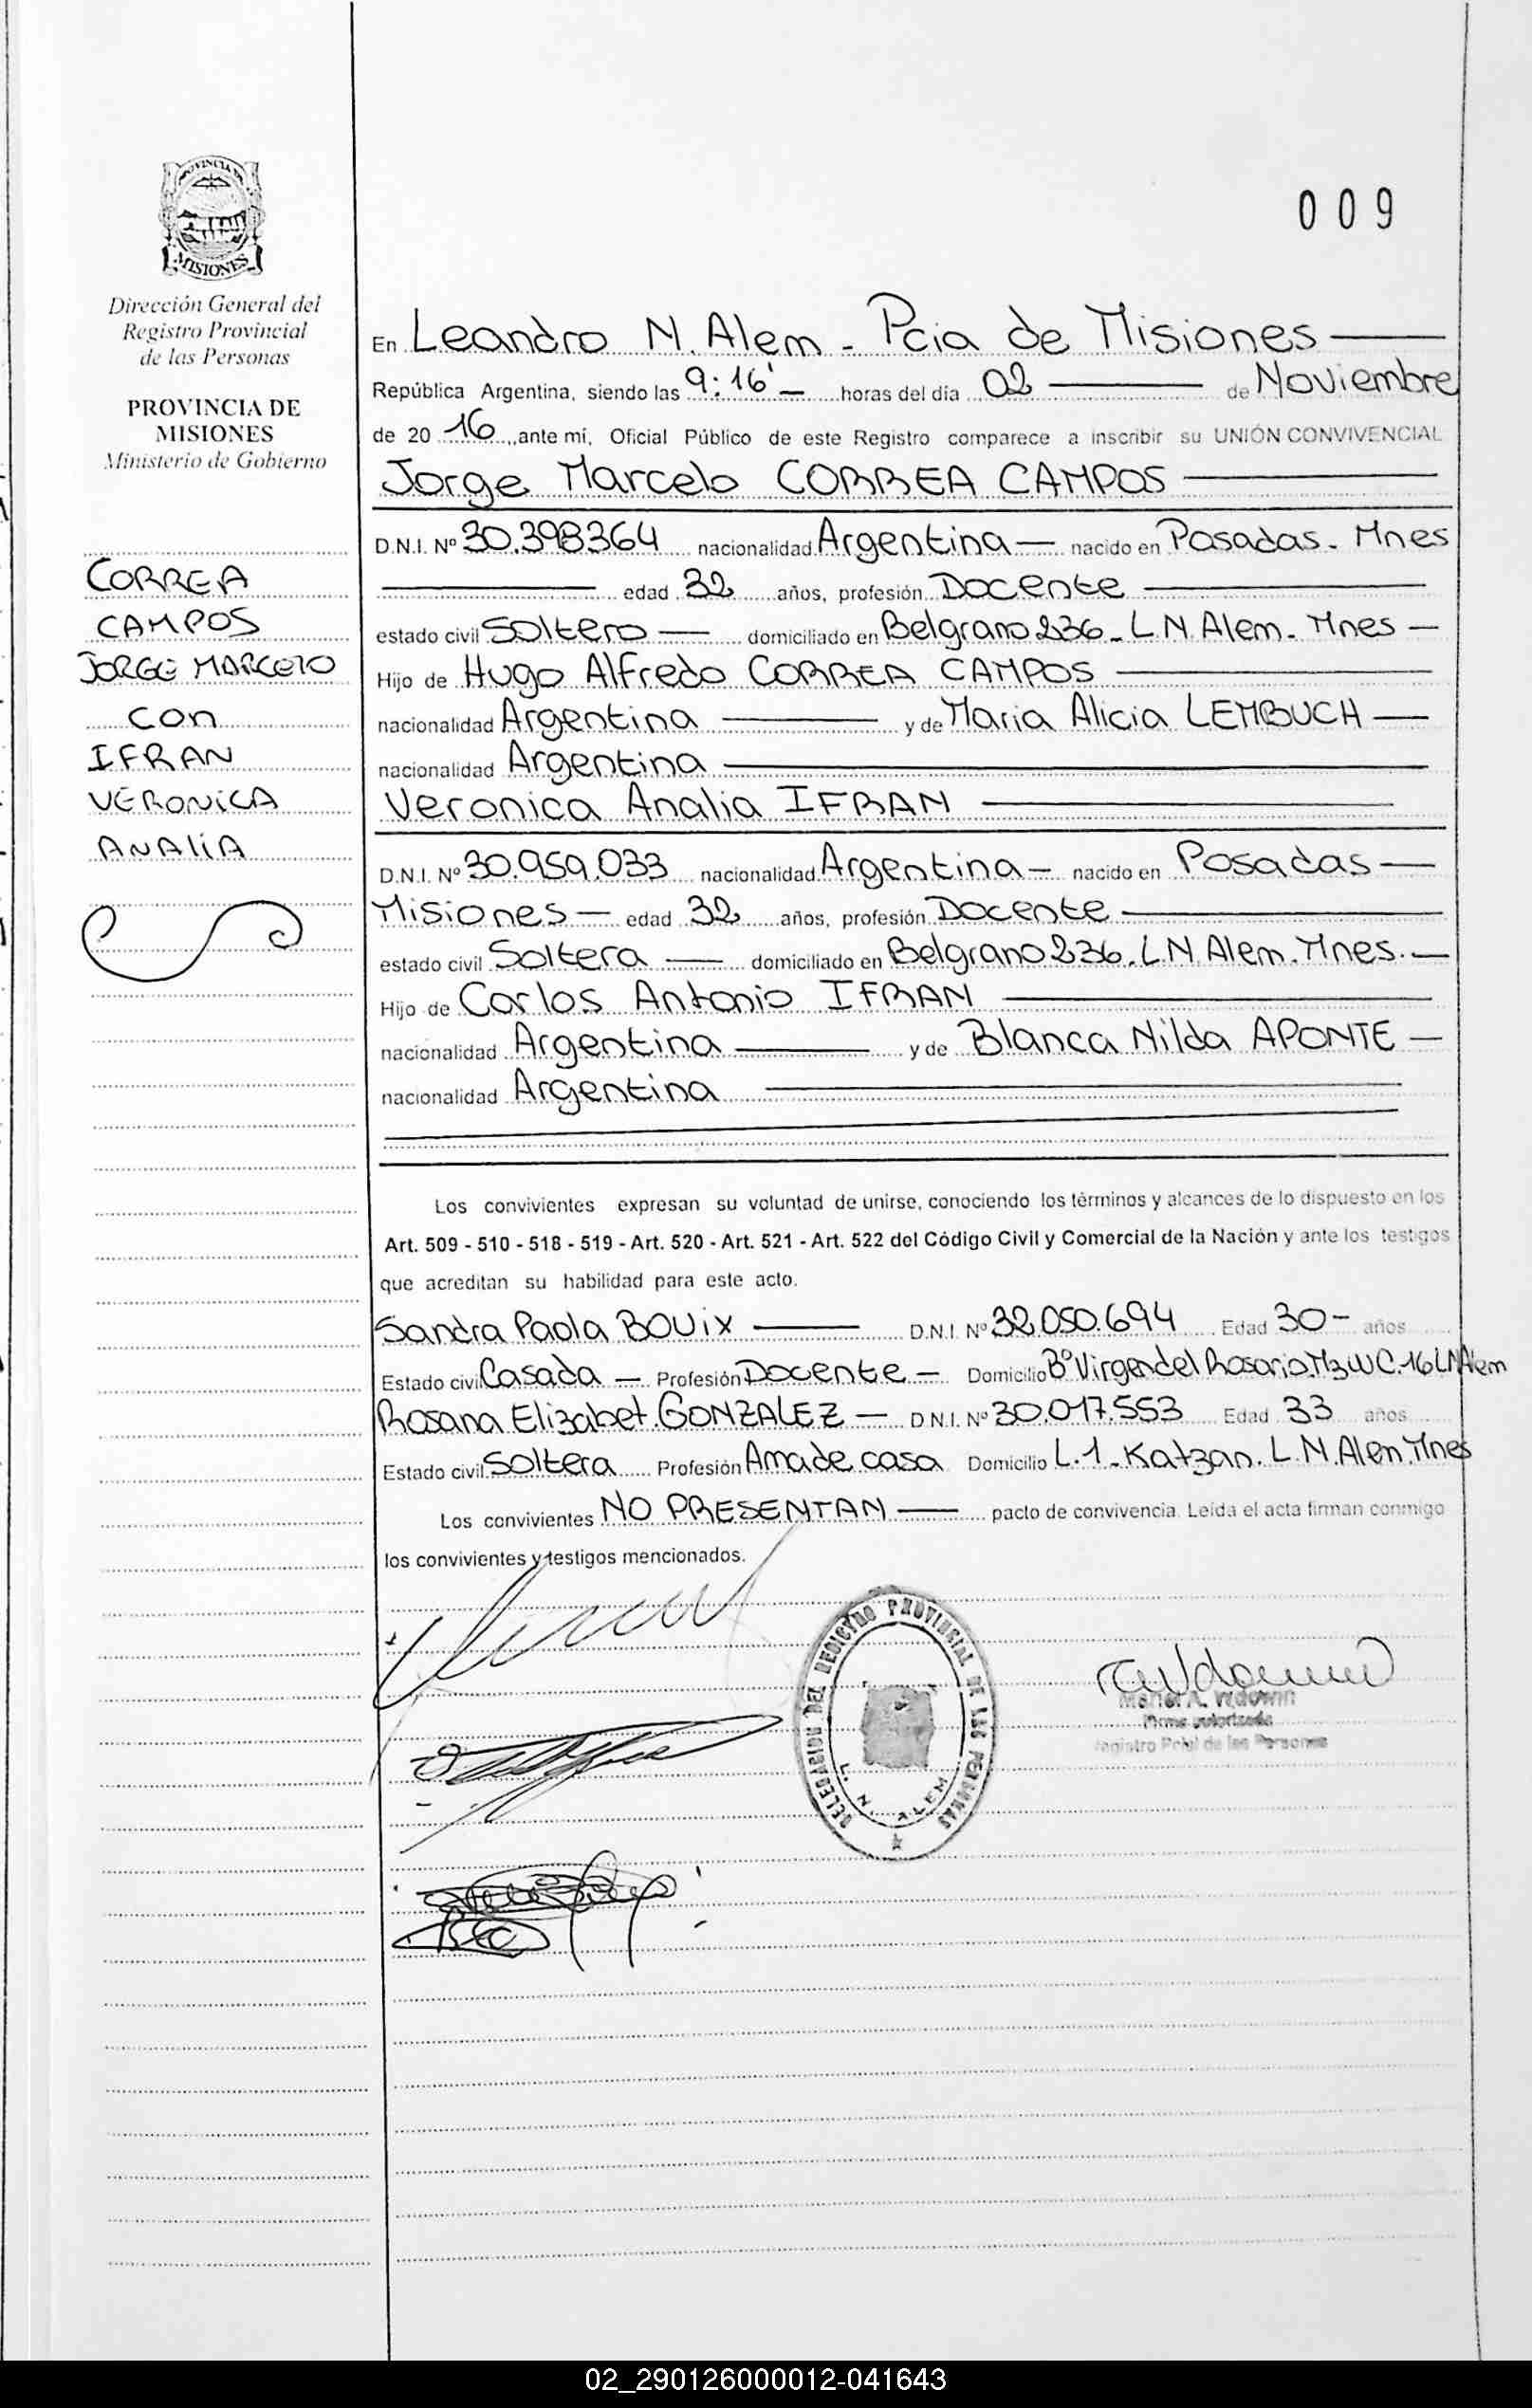 PROVINCIA DE
MISIONES
009
Dirección General del
Registro Provincial
de las Personas
PROVINCIA DE
MISIONES
Ministerio de Gobierno
CORREA
CAMPOS
JORGE MARCELO
CON
IFRAN
VERONICA
ANALIA
En Leandro N. Alem - Pcia de Misiones
República Argentina, siendo las 9:16' horas del día 02 de Noviembre
de 2016, ante mí, Oficial Público de este Registro comparece a inscribir su UNIÓN CONVIVENCIAL
Jorge Marcelo CORREA CAMPOS
D.N.I. Nº 30.398364 nacionalidad Argentina nacido en Posadas. Mnes
edad 32 años, profesión Docente
estado civil Soltero domiciliado en Belgrano 236 - L.N. Alem - Mnes
Hijo de Hugo Alfredo CORREA CAMPOS
nacionalidad Argentina y de Maria Alicia LEMBUCH
nacionalidad Argentina
Veronica Analia IFRAN
D.N.I. Nº 30.959.033 nacionalidad Argentina nacido en Posadas
Misiones edad 32 años, profesión Docente
estado civil Soltera domiciliado en Belgrano 236. L.N Alem. Mnes.
Hijo de Carlos Antonio IFRAN
nacionalidad Argentina y de Blanca Nilda APONTE
nacionalidad Argentina
Los convivientes expresan su voluntad de unirse, conociendo los términos y alcances de lo dispuesto en los
Art. 509 - 510 - 518 - 519 - Art. 520 - Art. 521 - Art. 522 del Código Civil y Comercial de la Nación y ante los testigos
que acreditan su habilidad para este acto.
Sandra Paola BOUIX D.N.I. Nº 32.050.694 Edad 30 años
Estado civil Casada Profesión Docente Domicilio Bº Virgen del Rosario Mz W C.16 LN Alem
Rosana Elizabet GONZALEZ D.N.I. Nº 30.017.553 Edad 33 años
Estado civil Soltera Profesión Ama de casa Domicilio L.1 - Katzan. L.N. Alem Mnes
Los convivientes NO PRESENTAN pacto de convivencia. Leída el acta firman conmigo
los convivientes y testigos mencionados.
DELEGACION DEL REGISTRO PROVINCIAL DE LAS PERSONAS
L. N. ALEM
Firma autorizada
Registro Pcial de las Personas
02_290126000012-041643